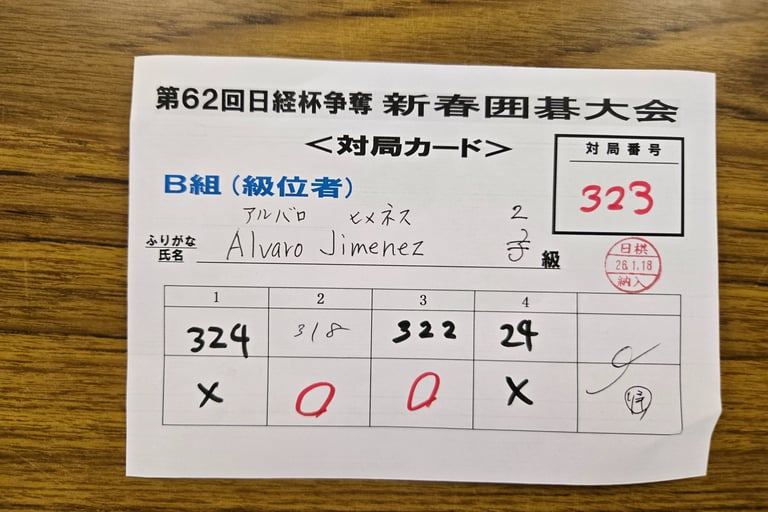 第62回日経杯争奪 新春囲碁大会
<対局カード>
対局番号
323
B組(級位者)
アルバロ ヒメネス 2
ふりがな
氏名 Alvaro Jimenez 級
日棋
26.1.18
納入
1 2 3 4
324 318 322 24
× ○ ○ ×